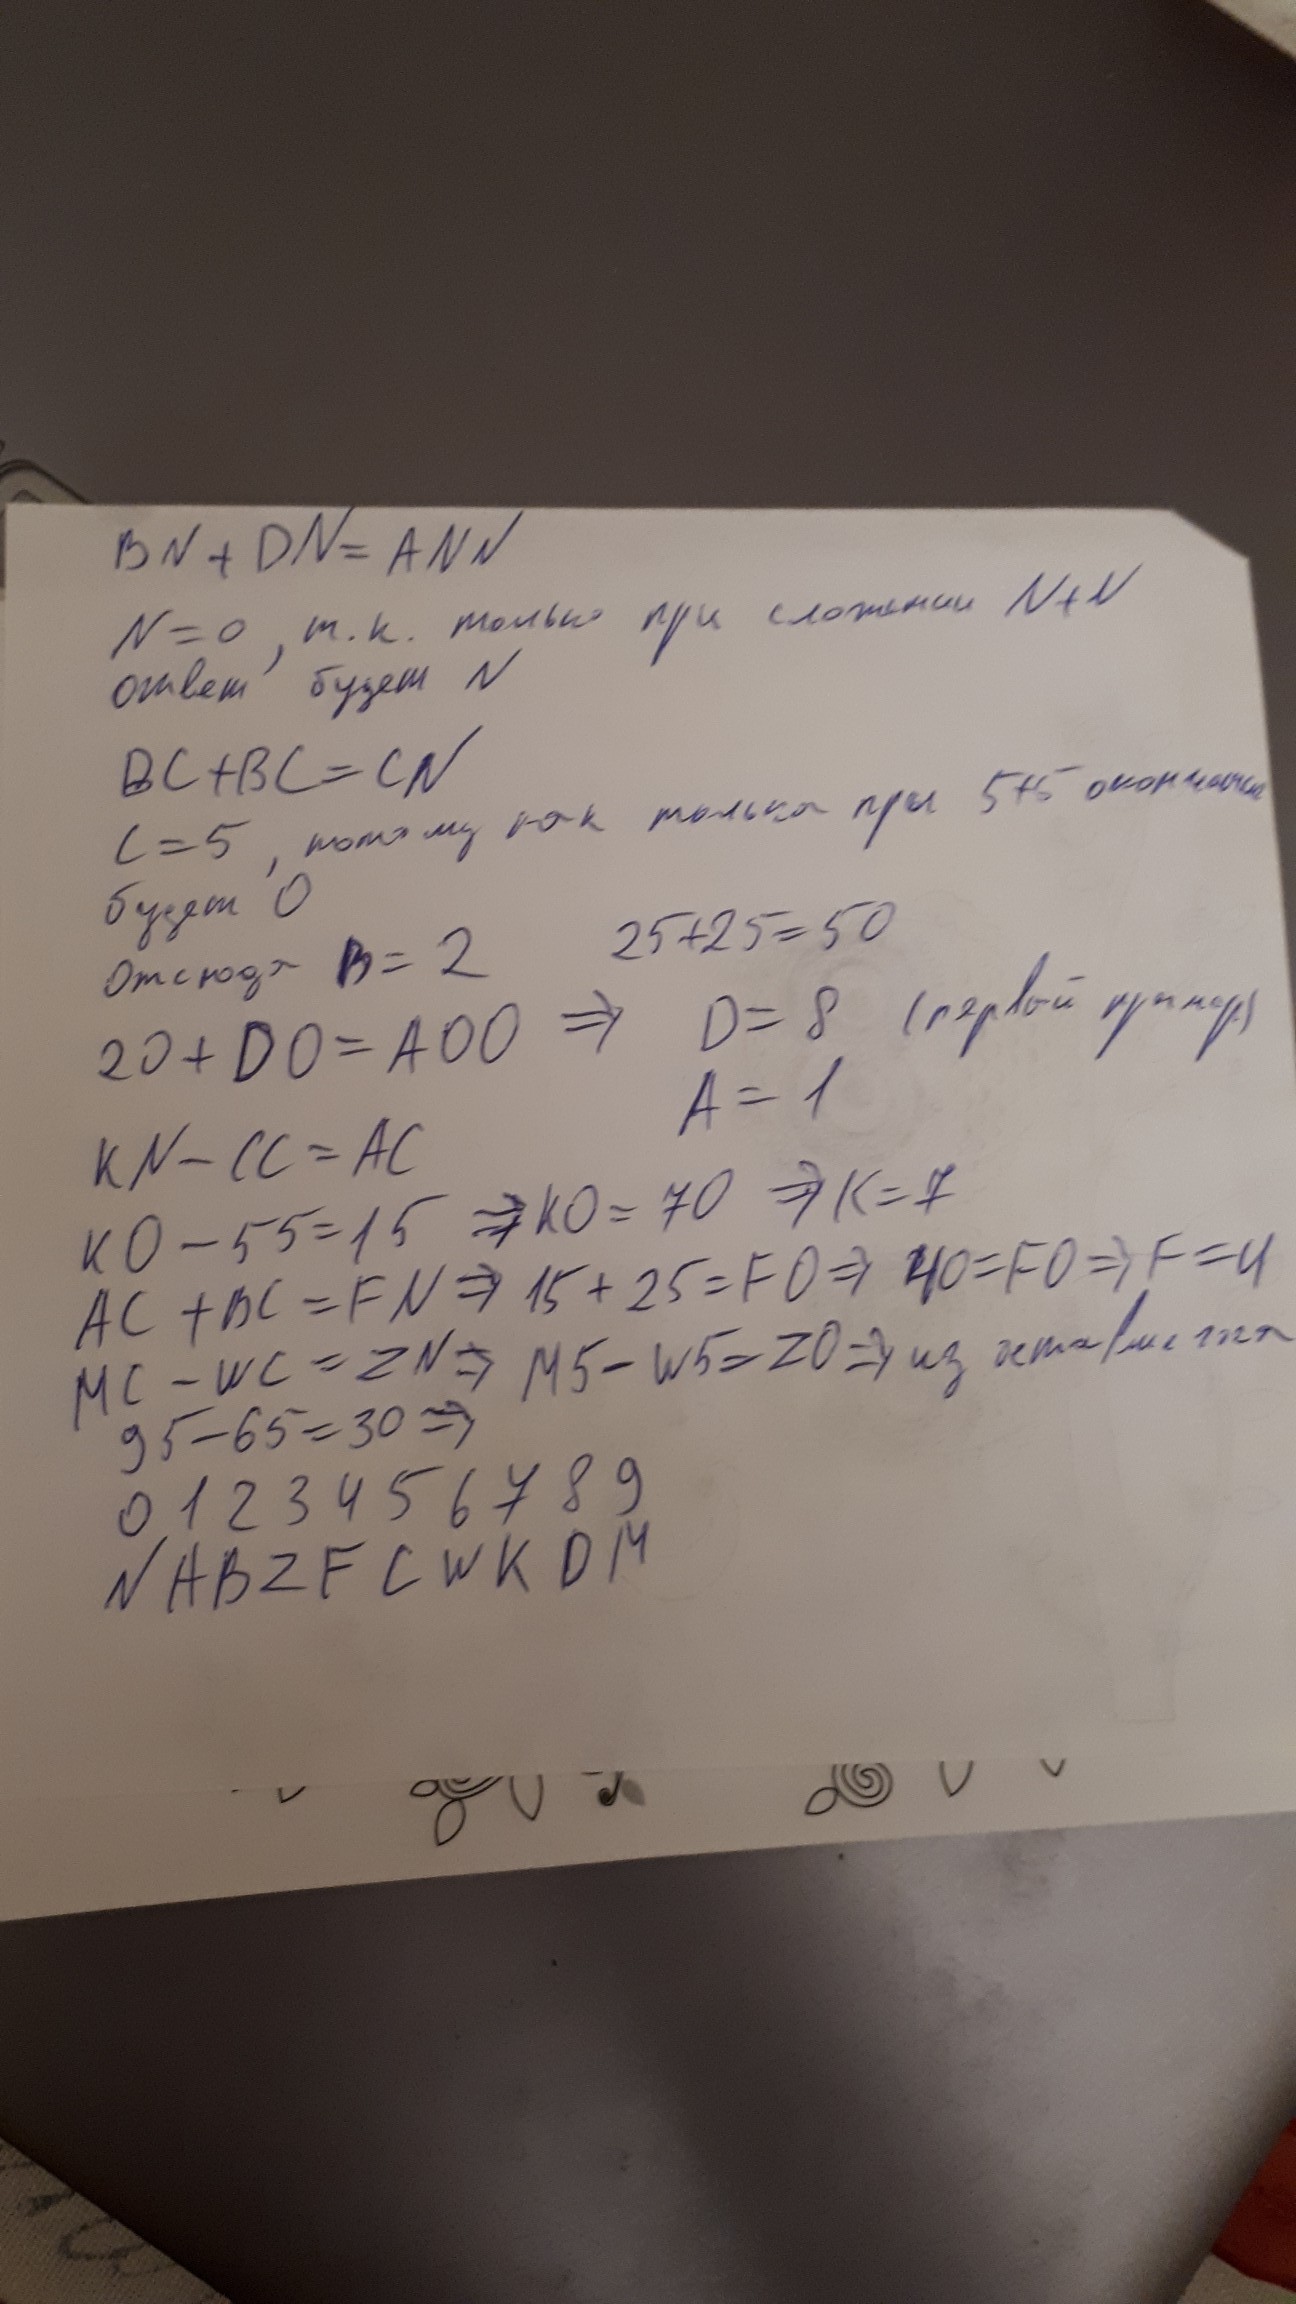 BN + DN = ANN
N=0, т.к. только при сложении N+N
ответ будет N
BC+BC=CN
C=5, потому как только при 5+5 окончание
будет 0
Отсюда B=2 25+25=50
20+D0=A00 ⇒ D=8 (первый пример)
A=1
KN-CC=AC
K0-55=15 ⇒ K0=70 ⇒ K=7
AC+BC=FN ⇒ 15+25=F0 ⇒ 40=F0 ⇒ F=4
MC-WC=ZN ⇒ M5-W5=Z0 ⇒ из
95-65=30 ⇒
0 1 2 3 4 5 6 7 8 9
N A B Z F C W K D M